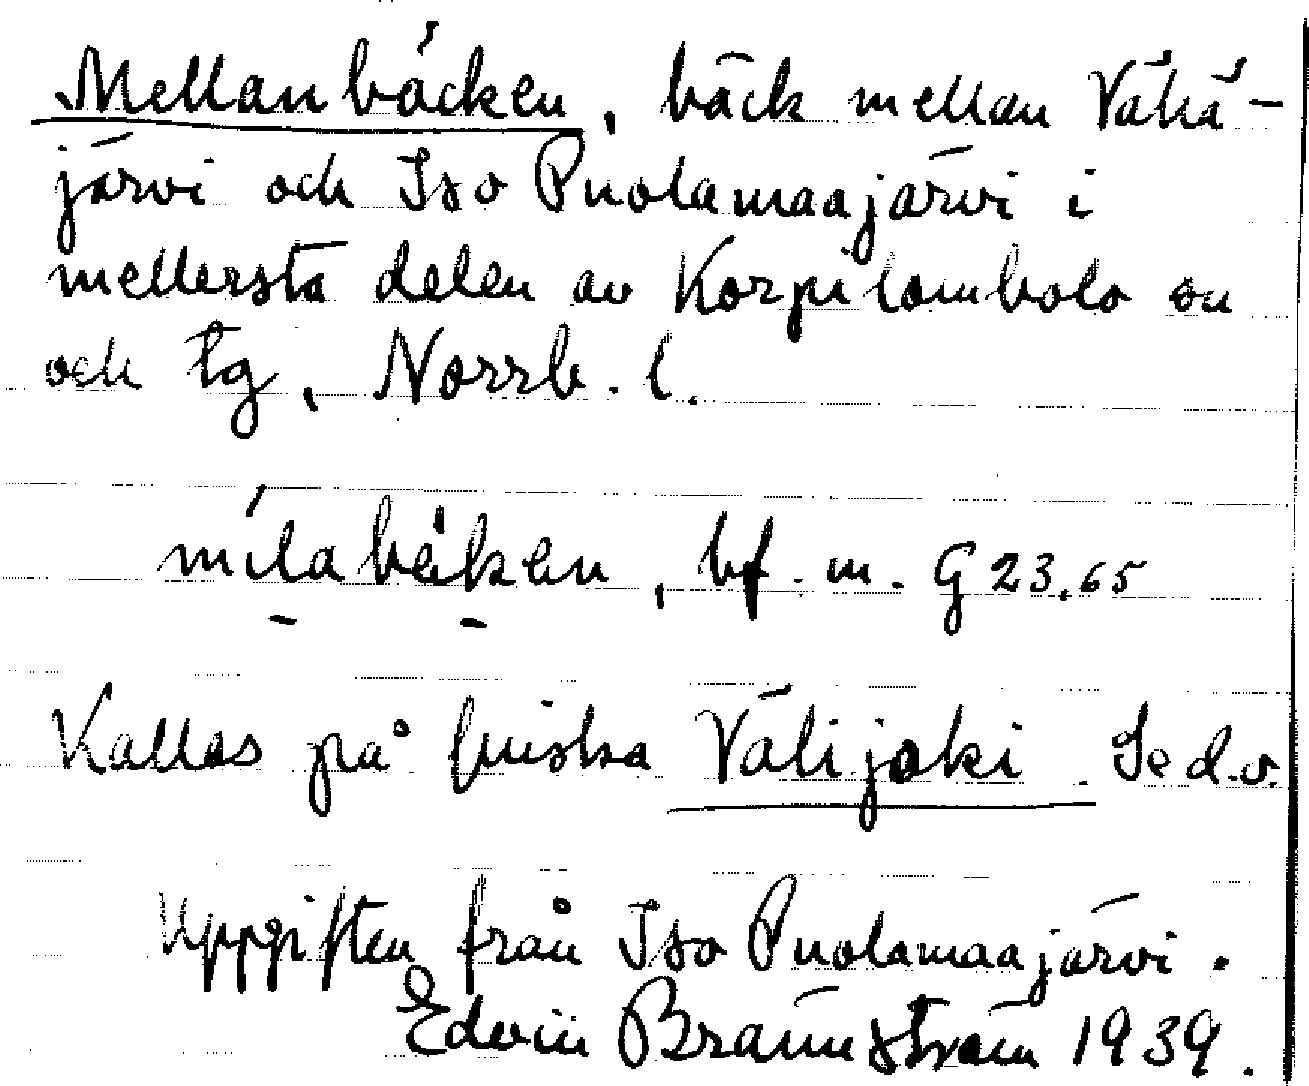 Mellanbäcken, bäck mellan Vähä-
järvi och Iso Puolamaajärvi i
mellersta delen av Korpilombolo sn
och tg, Norrb. l.
mílabäken, bf. m. G 23.65
Kallas på finska Välijoki. Se d.o.
Uppgiften från Iso Puolamaajärvi.
Edvin Brännström 1939.